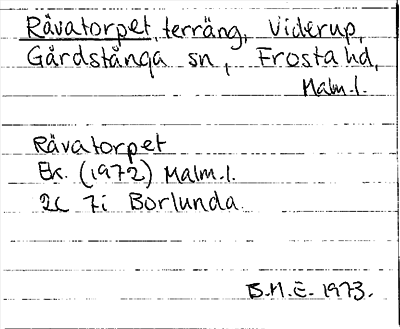 Råvatorpet, terräng, Viderup,
Gårdstånga sn, Frosta hd,
Malm.l.
Råvatorpet
Ek. (1972) Malm.l.
2C 7i Borlunda.
B.M.E. 1973.